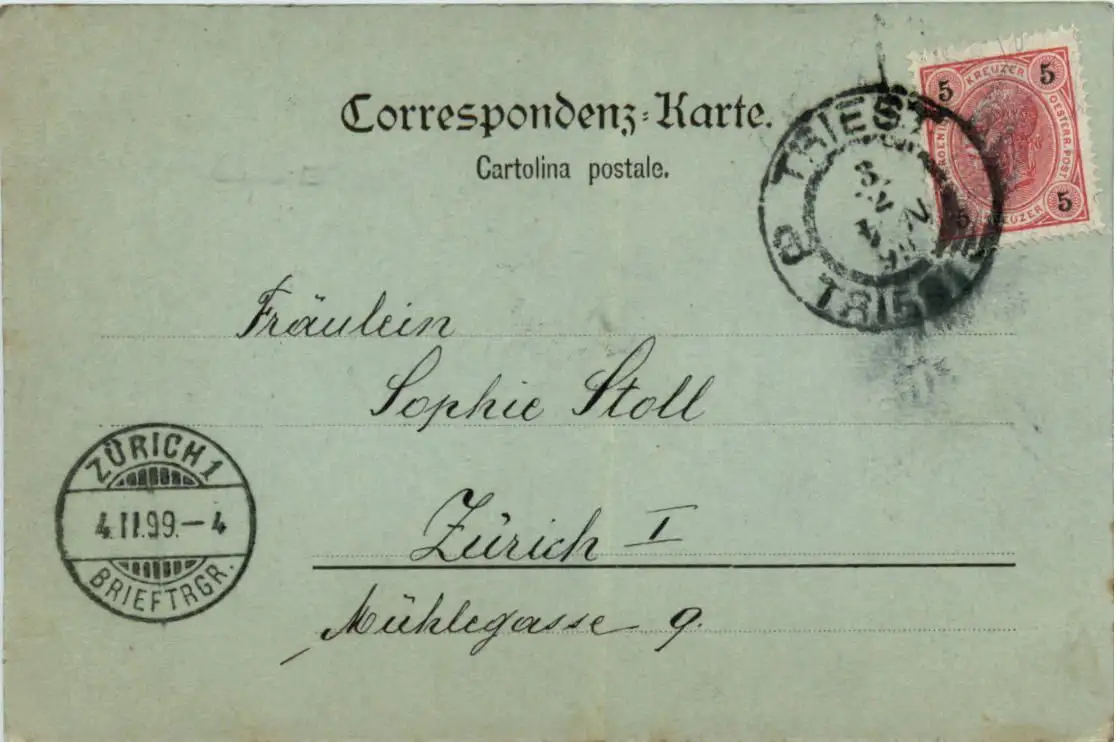 Correspondenz-Karte.
Cartolina postale.
5 KREUZER 5
OESTERR. POST
5 KREUZER 5
TRIEST
TRIEST
Fräulein
Sophie Stoll
ZÜRICH 1
4.II.99.-4
BRIEFTRGR.
Zürich I
Mühlegasse 9.